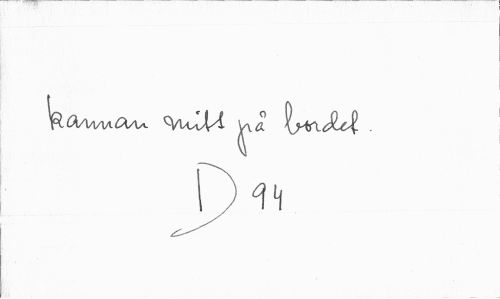 kannan mitt på bordet.
D 94